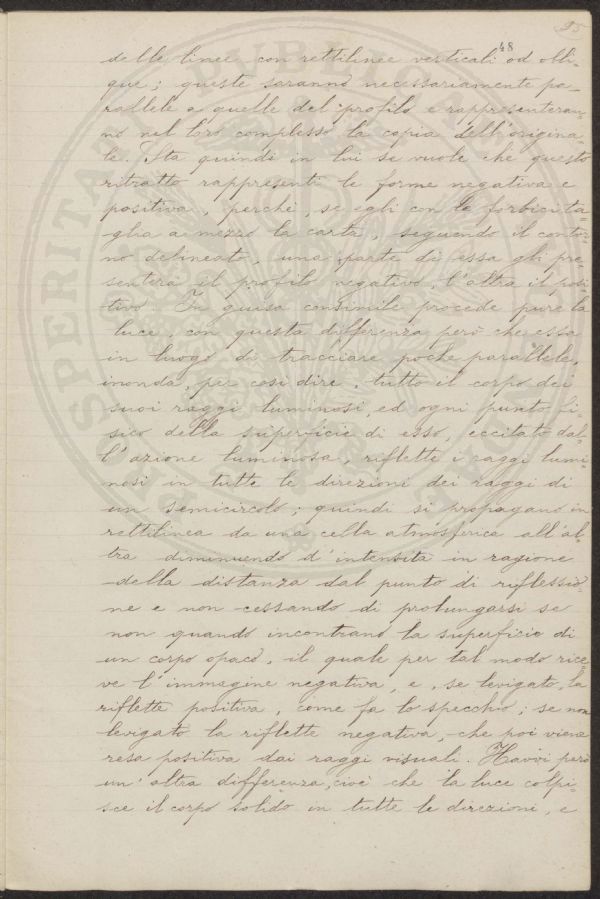 25
48
delle linee con rettilinee verticali od obli-
que; queste saranno necessariamente pa-
rallele a quelle del profilo e rappresenteran-
no nel loro complesso la copia dell'origina-
le. Sta quindi in lui se vuole che questo
ritratto rappresenti le forme negativa e
positiva, perchè, se egli con le forbici ta-
glia a mezzo la carta, seguendo il contor-
no delineato, una parte di essa gli pre-
senterà il profilo negativo, l'altra il posi-
tivo. In guisa consimile procede pure la
luce, con questa differenza però che essa
in luogo di tracciare poche parallele,
inonda, per così dire, tutto il corpo dei
suoi raggi luminosi, ed ogni punto fi-
sico della superficie di esso, eccitato dal-
l'azione luminosa, riflette i raggi lumi-
nosi in tutte le direzioni dei raggi di
un semicircolo; quindi si propagano in
rettilinea da una cella atmosferica all'al-
tra diminuendo d'intensità in ragione
della distanza dal punto di riflessio-
ne e non cessando di prolungarsi se
non quando incontrano la superficie di
un corpo opaco, il quale per tal modo rice-
ve l'immagine negativa, e, se levigato, la
riflette positiva, come fa lo specchio; se non
levigato la riflette negativa, che poi viene
resa positiva dai raggi visuali. Havvi però
un'altra differenza, cioè che la luce colpi-
sce il corpo solido in tutte le direzioni, e